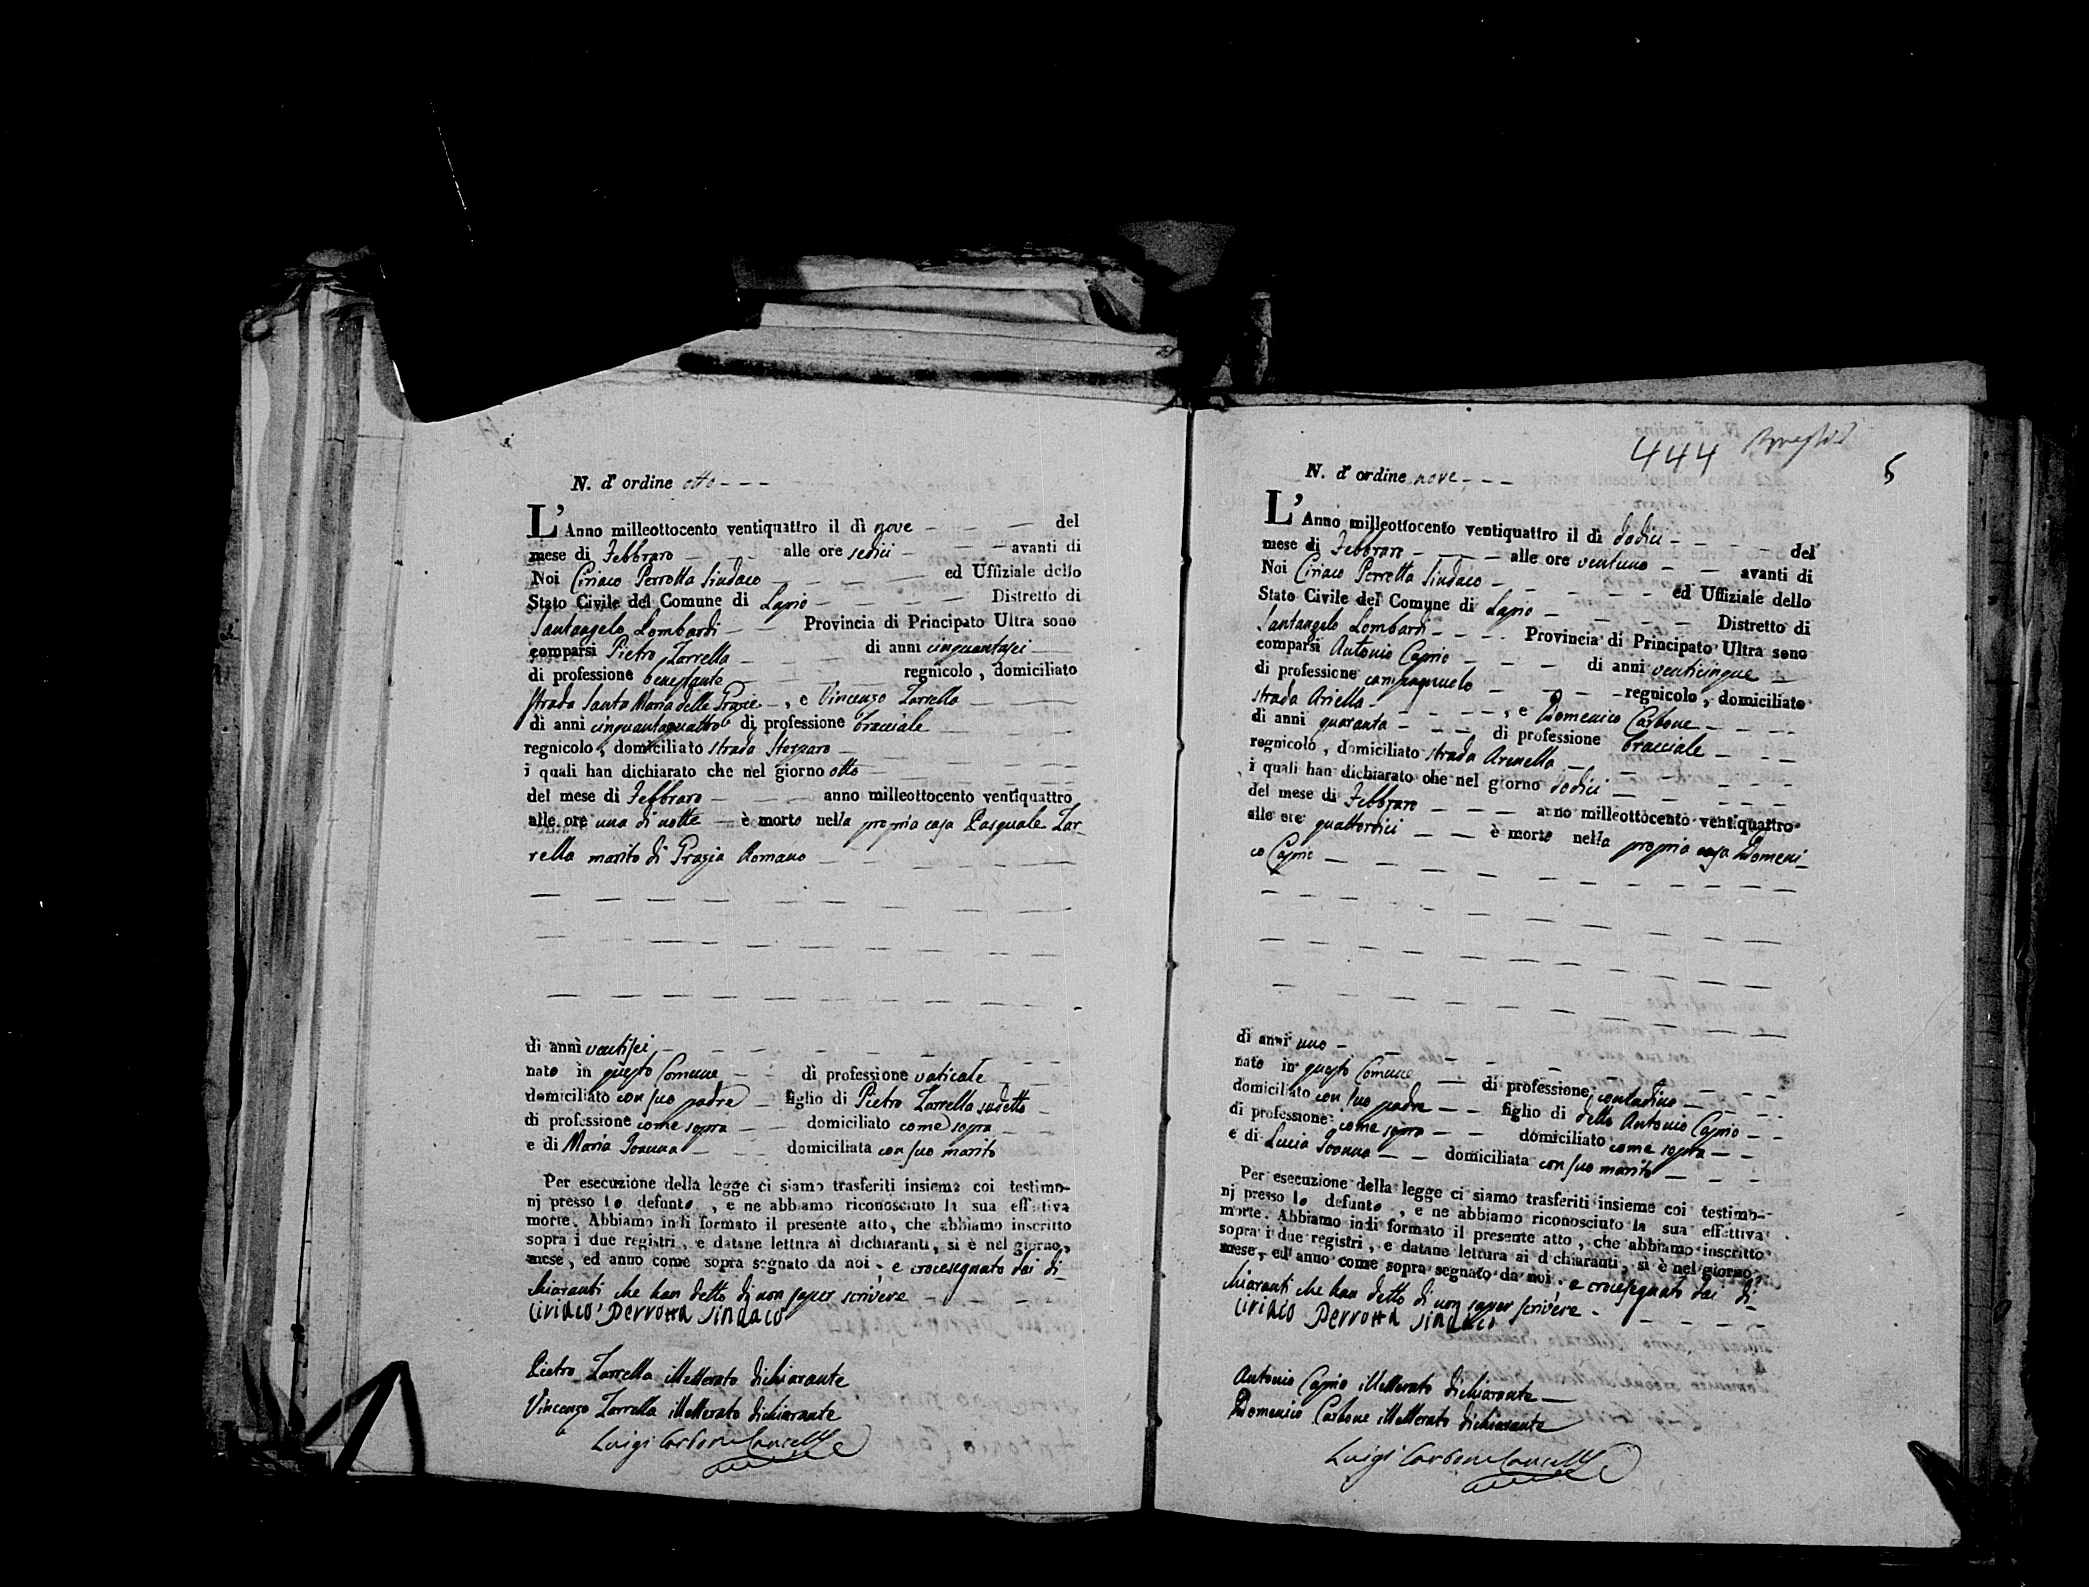 N. d' ordine otto
L'Anno milleottocento ventiquattro il dì nove del
mese di Febbraro alle ore sedici avanti di
Noi Ciriaco Perrotta Sindaco ed Uffiziale dello
Stato Civile del Comune di Lapio Distretto di
Santangelo Lombardi Provincia di Principato Ultra sono
comparsi Pietro Zarrella di anni cinquantasei
di professione benestante regnicolo, domiciliato
strada Santa Maria delle Grazie, e Vincenzo Zarrella
di anni cinquantaquattro di professione bracciale
regnicolo, domiciliato strada
i quali han dichiarato che nel giorno otto
del mese di Febbraro anno milleottocento ventiquattro
alle ore una di notte è morto nella propria casa Pasquale Zar-
rella marito di Grazia Romano
di anni ventisei
nato in questo Comune di professione vaticale
domiciliato con suo padre figlio di Pietro Zarrella sudetto
di professione come sopra domiciliato come sopra
e di Maria Ioanna domiciliata con suo marito
Per esecuzione della legge ci siamo trasferiti insieme coi testimo-
nj presso lo defunto, e ne abbiamo riconosciuto la sua effettiva
morte. Abbiamo indi formato il presente atto, che abbiamo inscritto
sopra i due registri, e datane lettura ai dichiaranti, si è nel giorno,
mese, ed anno come sopra segnato da noi, e crocesegnato dai di-
chiaranti che han detto di non saper scrivere
Ciriaco Perrotta Sindaco
Pietro Zarrella illetterato dichiarante
Vincenzo Zarrella illetterato dichiarante
Luigi Carbone Cancelle
444
5
N. d' ordine nove
L'Anno milleottocento ventiquattro il dì dodici del
mese di Febbraro alle ore ventuno avanti di
Noi Ciriaco Perrotta Sindaco ed Uffiziale dello
Stato Civile del Comune di Lapio Distretto di
Santangelo Lombardi Provincia di Principato Ultra sono
comparsi Antonio Caprio di anni venticinque
di professione campagnuolo regnicolo, domiciliato
strada Ariella, e Domenico Carbone
di anni quaranta di professione bracciale
regnicolo, domiciliato strada Arenella
i quali han dichiarato che nel giorno dodici
del mese di Febbraro anno milleottocento ventiquattro
alle ore quattordici è morto nella propria casa Domeni-
co Caprio
di anni uno
nato in questo Comune di professione contadino
domiciliato con suo padre figlio di detto Antonio Caprio
di professione come sopra domiciliato come sopra
e di Lucia Ioanna domiciliata con suo marito
Per esecuzione della legge ci siamo trasferiti insieme coi testimo-
nj presso lo defunto, e ne abbiamo riconosciuto la sua effettiva
morte. Abbiamo indi formato il presente atto, che abbiamo inscritto
sopra i due registri, e datane lettura ai dichiaranti, si è nel giorno,
mese, ed anno come sopra segnato da noi, e crocesegnato dai di-
chiaranti che han detto di non saper scrivere
Ciriaco Perrotta Sindaco
Antonio Caprio illetterato dichiarante
Domenico Carbone illetterato dichiarante
Luigi Carbone Cancelle